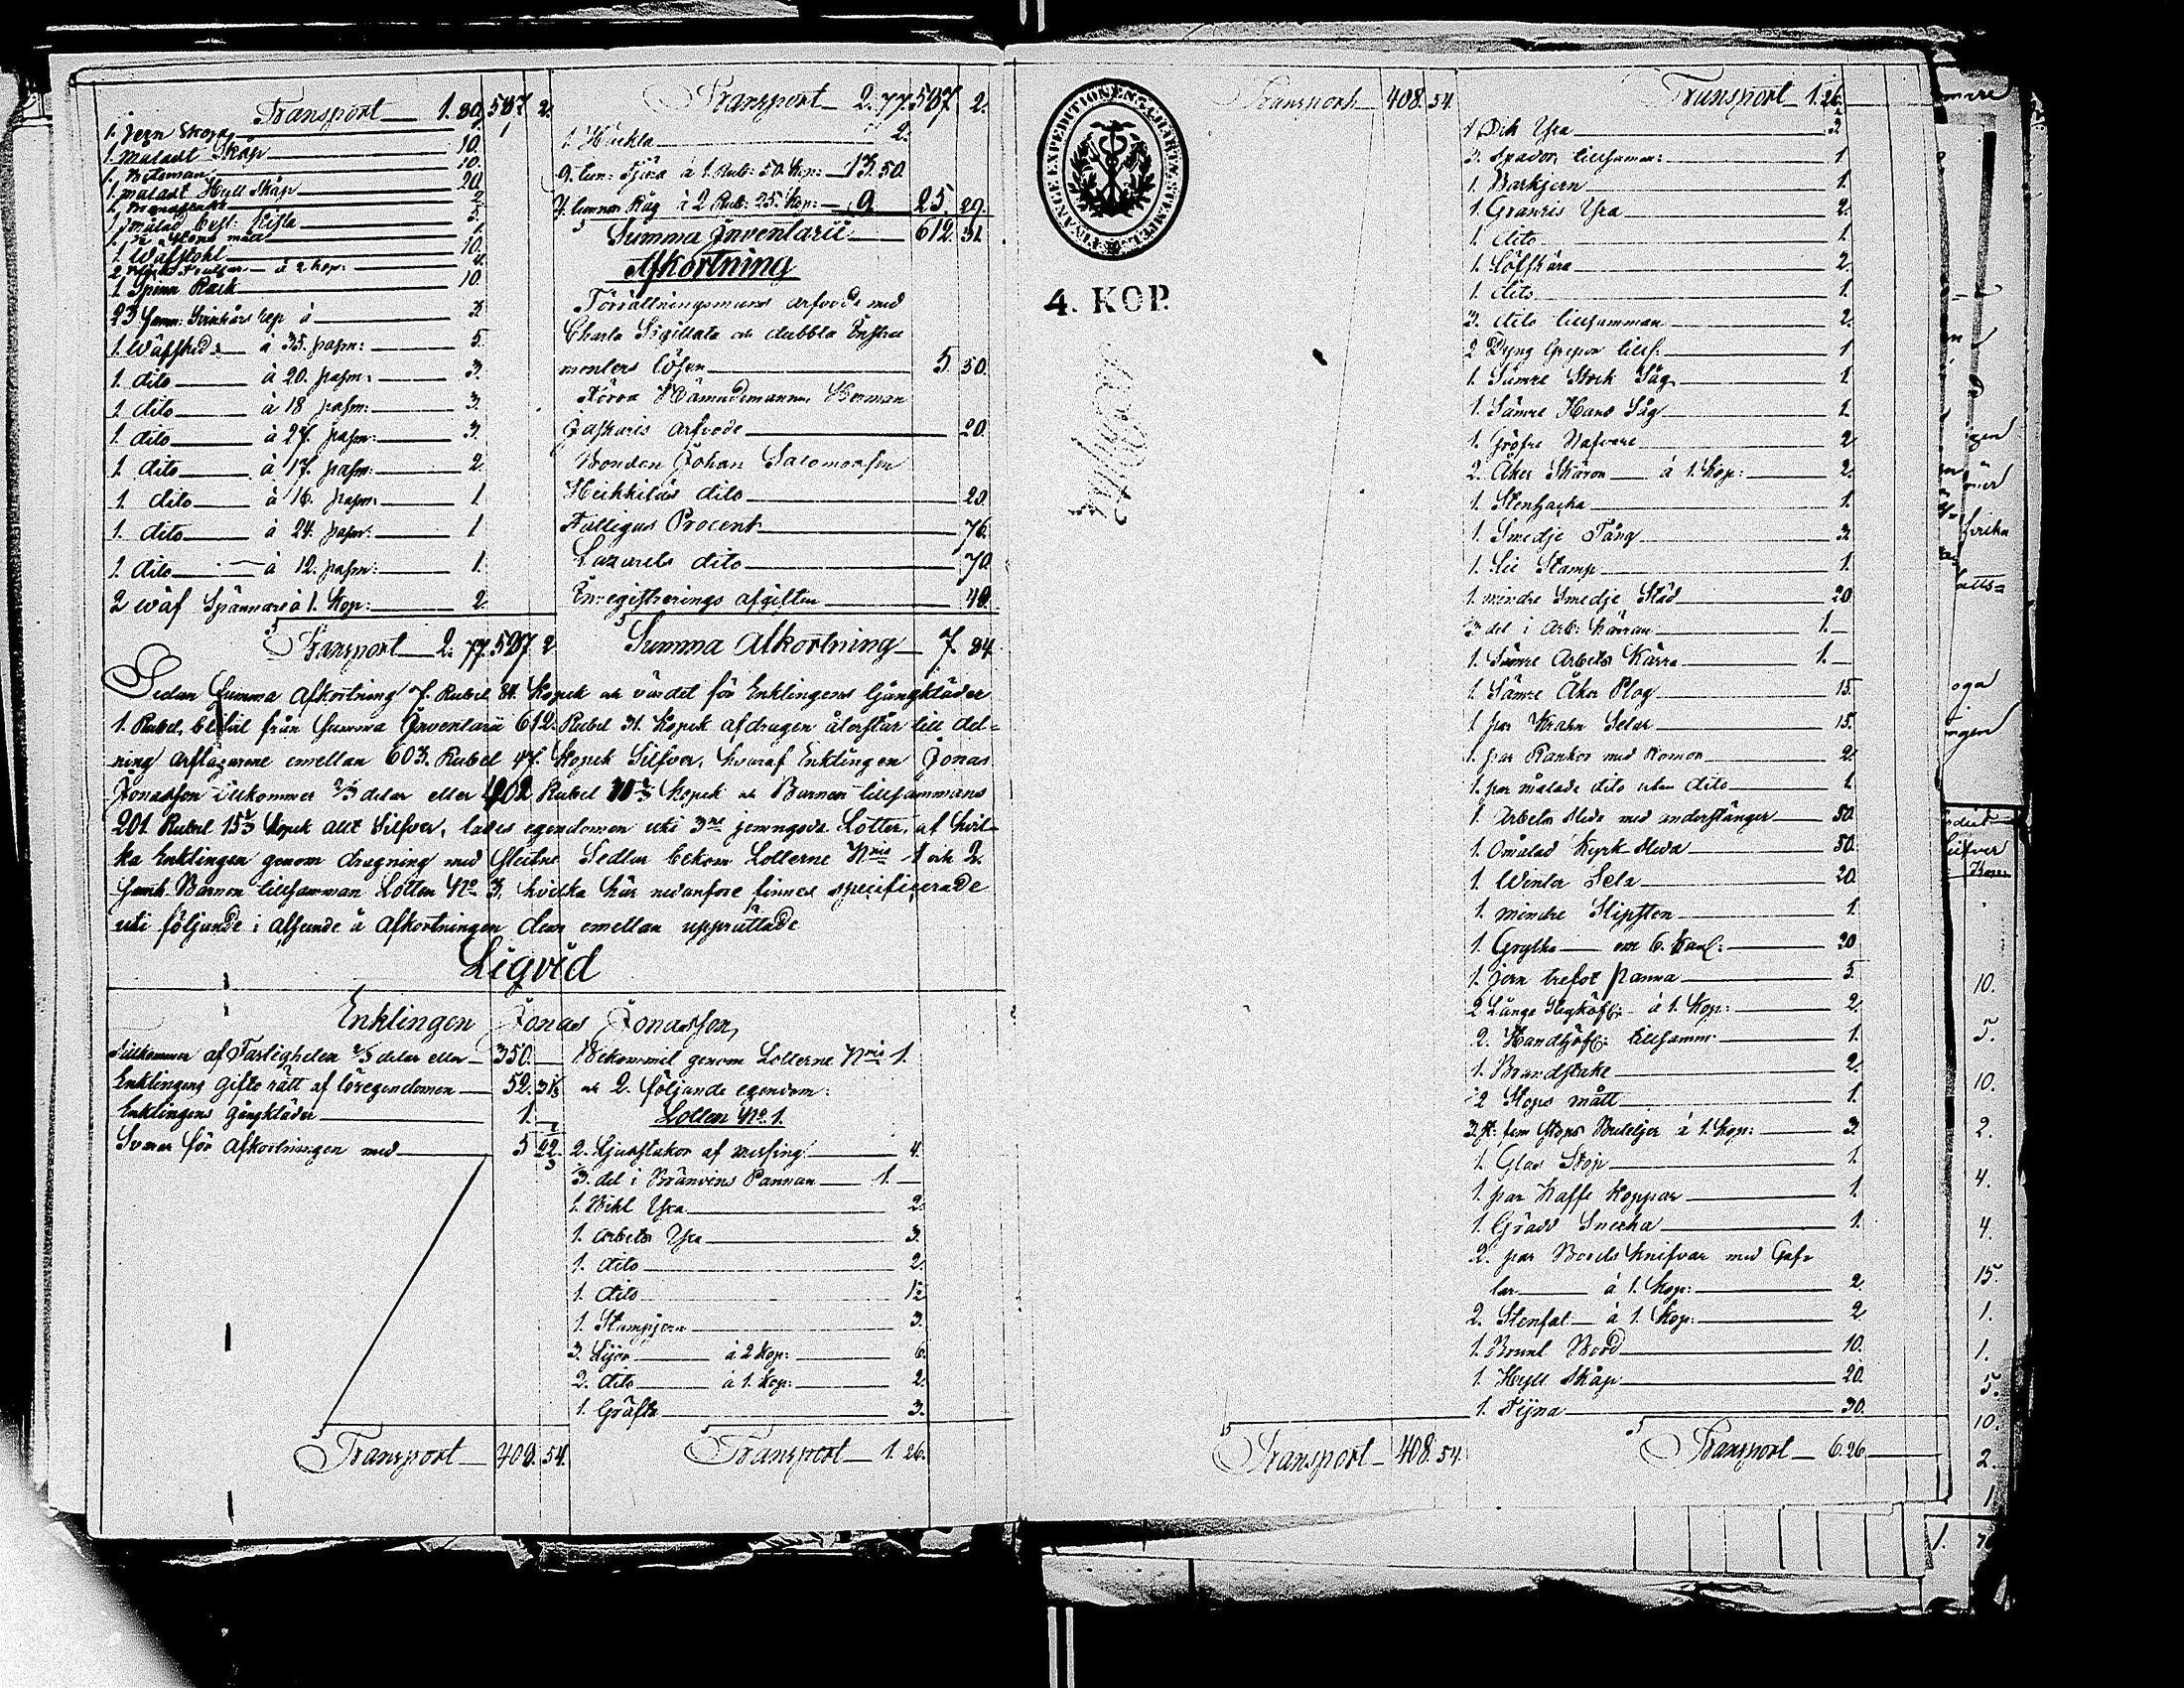 Transport 1. 80. 587 2.
1. Jern Skopa 1
1. Måladt Skåp 10.
1. 10.
1. måladt Hyll Skåp 20
1. 2
1. målad Kista 5.
1. Kops mått 1.
1. Wäfstohl 10.
2. à 2 kop: 4.
1. Spinn Rack 10.
23 à 3
1. Wäfsked à 35. pasm: 5.
1. dito à 20. pasm: 3.
1 dito à 18 pasm: 3.
1 dito à 27. pasm: 3.
1 dito à 17. pasm: 2
1 dito à 16. pasm: 1.
1. dito à 24. pasm: 1
1. dito à 12. pasm: 1.
2 wäf Spännare à 1. Kop: 2
Transport 2. 77. 587 2
Transport 2. 77. 587 2.
1. Häckla 2.
9. tun: Tjära à 1. Rub: 50. Kop: 13. 50.
4. tunnor Råg à 2 Rub: 25. Kop: 9. 25. 29.
Summa Inventarii 612. 31.
Afkortning
Förrättningsmans arfvode med
Charta Sigillata och dubbla Instru
menters lösen 5. 50.
Förra Nämndemannen Herman
arfvode 20.
Bonden Johan Salomonsson
Heikkilas dito 20.
Fattigas Procent 76.
Lazaretts dito 70.
Enregistrerings afgiften 48.
Summa Afkortning 7. 84.
Sedan Summa Afkortning 7. Rubel 84. Kopek och värdet för Enklingens Gångkläder
1. Rubel, blifvit från Summa Inventarii 612. Rubel 31. Kopek afdragen återstår till del=
ning arftagarene emellan 603. Rubel 47. Kopek Silfver, hvaraf Enklingen Jonas
Jonasson tillkommer 2/3 delar eller 402 Rubel Kopek och Barnen tillsammans
201. Rubel 15 2/3 Kopek allt Silfver, lades egendomen uti 3ne jemngoda Lotter, af hvil=
ka Enklingen genom dragning med Sedlar bekom Lotterne Nris 1 och 2.
samt Barnen tillsamman Lotten No 3, hvilka här nedanföre finnes specificerade
uti följande i afseende å Afkortningen dem emellan upprättade
Liqvid
Enklingen Jonas Jonasson,
Tillkommer af Fastigheten 2/3 delar eller 350.
Enklingens gifto rätt af lösegendomen 52. 31 1/3
Enklingens gångkläder 1.
Svarar för Afkortningen med 5 22.
Transport 408. 54.
Bekommit genom Lotterne Nris 1.
och 2. följande egendom:
Lotten No 1.
2. Ljusstakor af messing 4.
3. del i Bränvins Pannan 1.
1. Bihl Yxa 2.
1. arbets Yxa 3.
1. dito 2.
1. dito 1 1/2
1. Stampjern 3.
3. Lijor à 2 Kop: 6.
2. dito à 1. Kop: 2.
1. Gräfta 3.
Transport 1. 26.
FINANCE EXPEDITIONENS CHARTÆ STEMPEL
4. KOP.
Transport 408. 54.
Transport 408. 54.
Transport 1. 26.
1 Dik Yxa 2
3. Spador tillsamman: 1
1. Barkjern 1.
1. Granris Yxa 2.
1. dito 1.
1. Löfskära 2.
1. dito 1.
3. dito tillsamman 2.
2 Dyng Grepar tills: 1
1. Sämre Stock Såg 1
1. Sämre Hand Såg 1
1. Gröfre Nafvare 2
2. Åker Skäror à 1. Kop: 2.
1. Stenhacka 1.
1. Smedje Tång 3
1. Lie Stamp 1.
1. mindre Smedje Städ 20
3 del i Arb: Kärran 1.
1. Sämre Arbets Kärra 1.
1. Sämre Åker Plog 15.
1 par Selar 15.
1. par Rankor med Komor 2.
1. par målade dito utan dito 1
1. Arbets Släde med understänger 50.
1. Omålad Kyrk släda 50.
1. Winter Sela 20
1. mindre Slipsten 1.
1. Gryta om 6. Kan: 20
1. Jern trefot panna 5.
2 Långe à 1. Kop: 2.
2. tillsamm: 1.
1. Brandstake 2.
1/2 Stops mått 1.
3. st: fem Stops Buteljer à 1. Kop: 3.
1. Glas Stop 1.
1. par Kaffe Koppar 1.
1. Grädd Snecka 1.
2. par Bords Knifvar med Gaf=
lar à 1. Kop: 2.
2. Stenfat à 1. Kop: 2
1. Brunt Bord 10.
1. Hyll Skåp 20.
1. Tijna 30.
Transport 6. 26
10.
5.
10.
2.
4.
4.
15.
1.
1.
5.
10.
2.
1